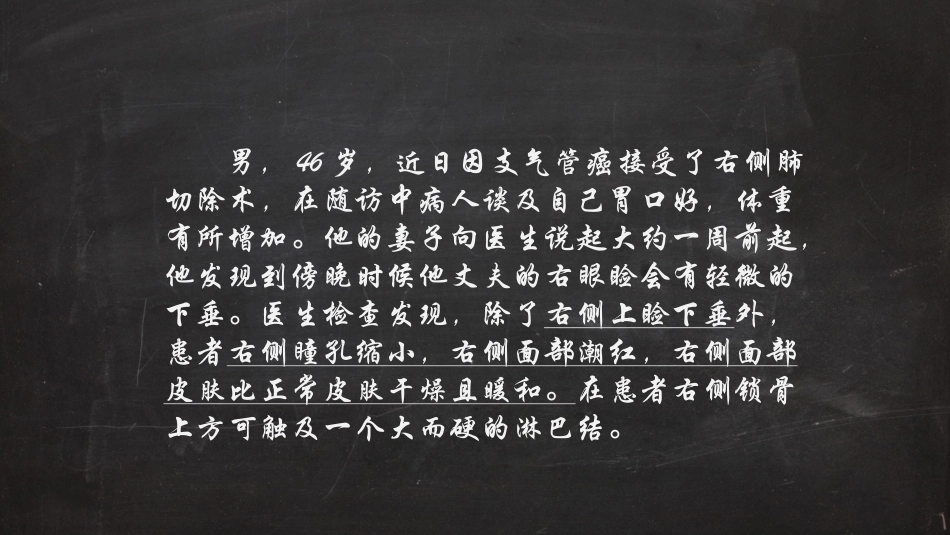 男，46岁，近日因支气管癌接受了右侧肺
切除术，在随访中病人谈及自己胃口好，体重
有所增加。他的妻子向医生说起大约一周前起，
他发现到傍晚时候他丈夫的右眼睑会有轻微的
下垂。医生检查发现，除了右侧上睑下垂外，
患者右侧瞳孔缩小，右侧面部潮红，右侧面部
皮肤比正常皮肤干燥且暖和。在患者右侧锁骨
上方可触及一个大而硬的淋巴结。